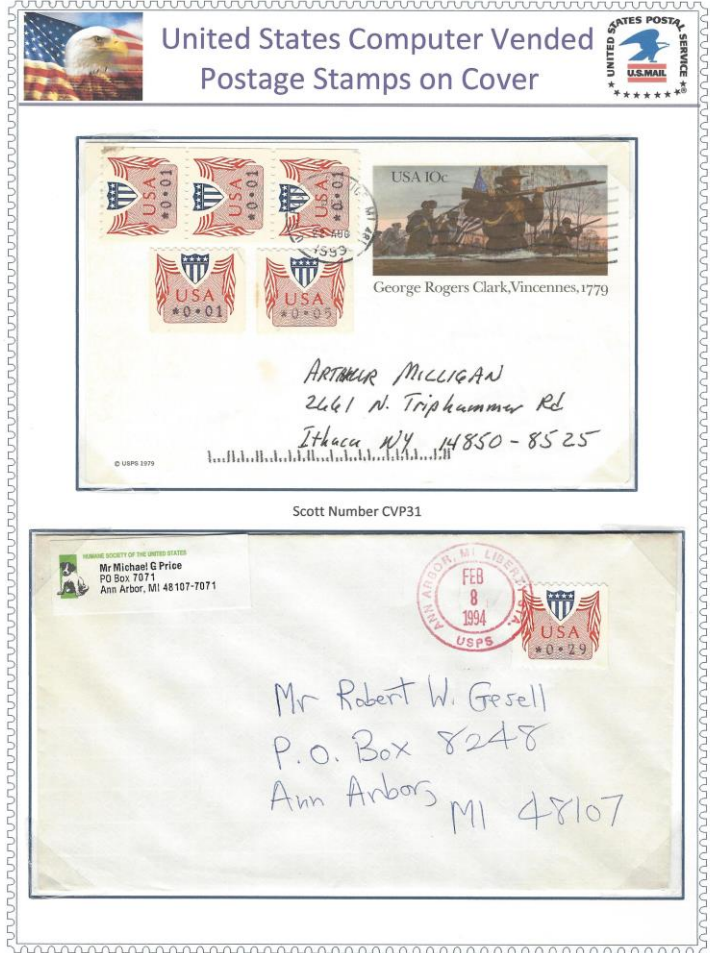 United States Computer Vended
Postage Stamps on Cover
UNITED STATES POSTAL SERVICE
U.S.MAIL
USA
*0•01
USA
*0•01
USA
*0•01
AUG
1993
USA 10c
USA
*0•01
USA
*0•05
George Rogers Clark,Vincennes,1779
ARTHUR MILLIGAN
2661 N. Triphammer Rd
Ithaca NY 14850-8525
© USPS 1979
Scott Number CVP31
HUMANE SOCIETY OF THE UNITED STATES
Mr Michael G Price
PO Box 7071
Ann Arbor, MI 48107-7071
ANN ARBOR, MI LIBERTY STA.
FEB
8
1994
USPS
USA
*0•29
Mr Robert W. Gesell
P.O. Box 8248
Ann Arbor,
MI 48107